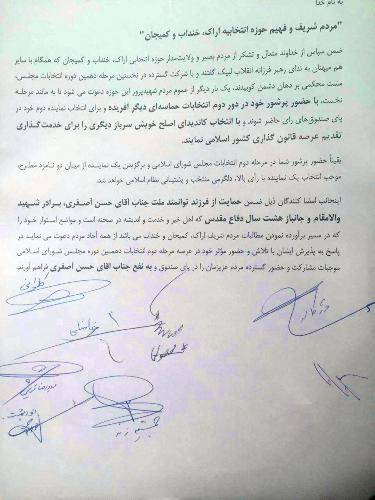 به نام خدا
"مردم شریف و فهیم حوزه انتخابیه اراک، خنداب و کمیجان"
ضمن سپاس از خداوند متعال و تشکر از مردم بصیر و ولایت‌مدار حوزه انتخابی اراک، خنداب و کمیجان که همگام با سایر
هم میهنان به ندای رهبر فرزانه انقلاب لبیک گفتند و با شرکت گسترده در نخستین مرحله دهمین دوره انتخابات مجلس،
مشت محکمی بر دهان دشمن کوبیدند، یک بار دیگر از عموم مردم شهیدپرور این حوزه دعوت می شود تا به مانند مرحله
نخست، با حضور پرشور خود در دور دوم انتخابات حماسه‌ای دیگر آفریده و برای انتخاب نماینده دوم خود در
پای صندوق‌های رای حاضر شوند و با انتخاب کاندیدای اصلح خویش سرباز دیگری را برای خدمت‌گذاری
تقدیم عرصه قانون گذاری کشور اسلامی نمایند.
یقیناً حضور پرشور شما در مرحله دوم انتخابات مجلس شورای اسلامی و برگزیدن یک نماینده از میان دو نامزد مطرح،
موجب انتخاب یک نماینده با رأی بالا، دلگرمی منتخب و پشتیبانی نظام اسلامی خواهد شد.
اینجانب امضا کنندگان ذیل ضمن حمایت از فرزند توانمند ملت جناب آقای حسن آصفری، برادر شهید
والامقام و جانباز هشت سال دفاع مقدس که اهل خبر و خدمت و اندیشه در صحنه است و مواضع استوار خود را
که در مسیر برآورده نمودن مطالبات مردم شریف اراک، کمیجان و خنداب می باشد از همه آحاد مردم دعوت می نمایند در
پاسخ به پذیرش ایشان با تلاش و حضور مؤثر خود در عرصه مرحله دوم انتخابات دهمین دوره مجلس شورای اسلامی
موجبات مشارکت و حضور گسترده مردم عزیزمان را در پای صندوق و به نفع جناب آقای حسن آصفری فراهم آورند.